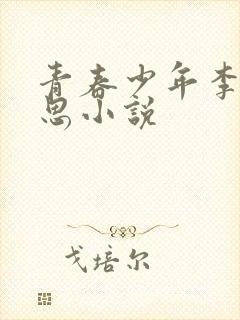 青春少年李
思小说
戈培尔